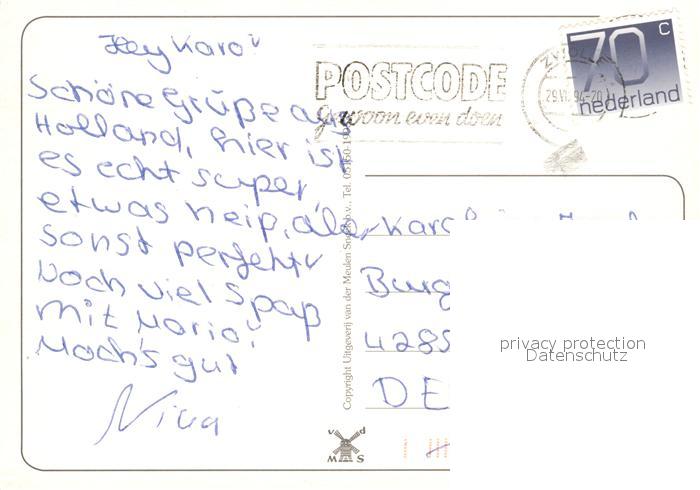 Hey Karo!
Schöne Grüße aus
Holland, hier ist
es echt super,
etwas heiß, aber
sonst perfekt!
Noch viel Spaß
mit Mario!
Mach's gut
Nina
POSTCODE
gewoon even doen
ZWOLLE
29.VI.94-20
70 c
nederland
Copyright Uitgeverij van der Meulen Sneek b.v., Tel.
Karo
Burg
4285
DE
v d
M S
privacy protection
Datenschutz